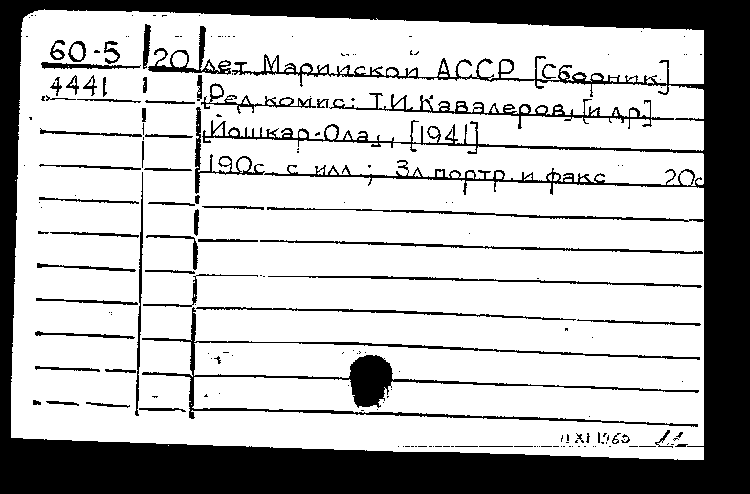 60-5 20 лет Марийской АССР [Сборник]
4441 Ред. комис: Т.И. Кавалеров, [и др.]
Йошкар-Ола, [1941]
190с. с илл; 3л. портр. и факс 20с
11 XI 1960